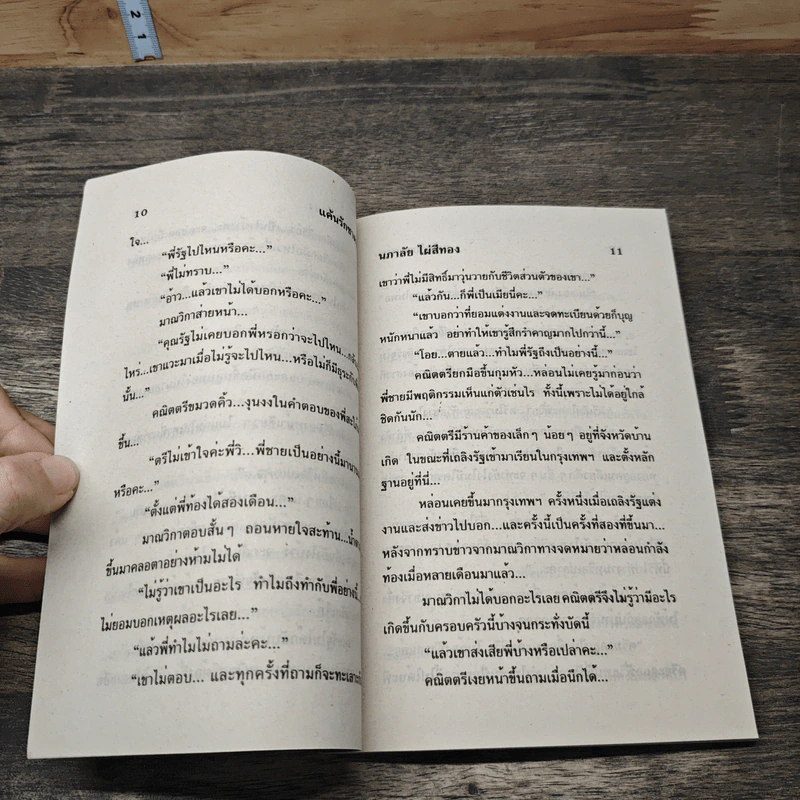 2
1
10
แค้นรัก
ใจ...
“พี่รัฐไปไหนหรือคะ...”
“พี่ไม่ทราบ...”
“อ้าว...แล้วเขาไม่ได้บอกหรือคะ...”
มาณวิกาส่ายหน้า...
“คุณรัฐไม่เคยบอกพี่หรอกว่าจะไปไหน...
ไหร่...เขาแวะมาเมื่อไม่รู้จะไปไหน...หรือไม่ก็มีธุระ
นั้น...”
คณิตตรีขมวดคิ้ว...งุนงงในคำตอบของพี่สะใภ้
ขึ้น...
“ตรีไม่เข้าใจค่ะพี่วิ...พี่ชายเป็นอย่างนี้มานาน
หรือคะ...”
“ตั้งแต่พี่ท้องได้สองเดือน...”
มาณวิกาตอบสั้นๆ ถอนหายใจสะท้าน...น้ำตา
ขึ้นมาคลอตาอย่างห้ามไม่ได้
“ไม่รู้ว่าเขาเป็นอะไร ทำไมถึงทำกับพี่อย่างนี้...
ไม่ยอมบอกเหตุผลอะไรเลย...”
“แล้วพี่ทำไมไม่ถามล่ะคะ...”
“เขาไม่ตอบ... และทุกครั้งที่ถามก็จะทะเลาะ
นภาลัย ไผ่สีทอง
11
เขาว่าพี่ไม่มีสิทธิ์มาวุ่นวายกับชีวิตส่วนตัวของเขา...”
“แล้วกัน...ก็พี่เป็นเมียนี่คะ...”
“เขาบอกว่าที่ยอมแต่งงานและจดทะเบียนด้วยก็บุญ
หนักหนาแล้ว อย่าทำให้เขารู้สึกรำคาญมากไปกว่านี้...”
“โอย...ตายแล้ว...ทำไมพี่รัฐถึงเป็นอย่างนี้...”
คณิตตรียกมือขึ้นกุมหัว...หล่อนไม่เคยรู้มาก่อนว่า
พี่ชายมีพฤติกรรมเห็นแก่ตัวเช่นไร ทั้งนี้เพราะไม่ได้อยู่ใกล้
ชิดกันนัก...
คณิตตรีมีร้านค้าของเล็กๆ น้อยๆ อยู่ที่จังหวัดบ้าน
เกิด ในขณะที่เถลิงรัฐเข้ามาเรียนในกรุงเทพฯ และตั้งหลัก
ฐานอยู่ที่นี่...
หล่อนเคยขึ้นมากรุงเทพฯ ครั้งหนึ่งเมื่อเถลิงรัฐแต่ง
งานและส่งข่าวไปบอก...และครั้งนี้เป็นครั้งที่สองที่ขึ้นมา...
หลังจากทราบข่าวจากมาณวิกาทางจดหมายว่าหล่อนกำลัง
ท้องเมื่อหลายเดือนมาแล้ว...
มาณวิกาไม่ได้บอกอะไรเลย คณิตตรีจึงไม่รู้ว่ามีอะไร
เกิดขึ้นกับครอบครัวนี้บ้างจนกระทั่งบัดนี้
“แล้วเขาส่งเสียพี่บ้างหรือเปล่าคะ...”
คณิตตรีเงยหน้าขึ้นถามเมื่อนึกได้...